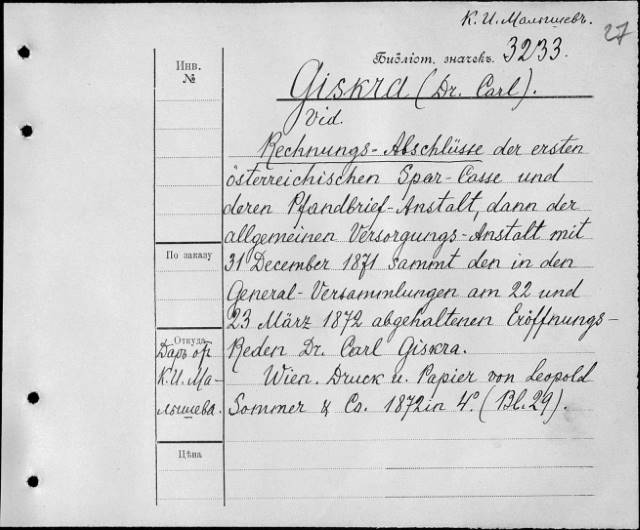 К. И. Малышевъ.
27
Библіот. значекъ. 3233.
Инв.
№
Giskra (Dr. Carl).
Vid.
Rechnungs-Abschlüsse der ersten
österreichischen Spar-Casse und
deren Pfandbrief-Anstalt, dann der
allgemeinen Versorgungs-Anstalt mit
31 December 1871 sammt den in den
General-Versammlungen am 22 und
23 März 1872 abgehaltenen Eröffnungs-
Reden Dr. Carl Giskra.
Wien. Druck u. Papier von Leopold
Sommer & Co. 1872 in 4º. (Bl. 29).
По заказу
Откуда
Даръ от
К. И. Ма-
лышева.
Цѣна